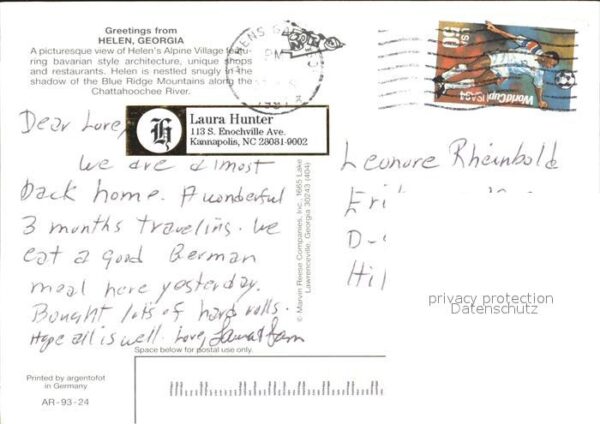 Greetings from
HELEN, GEORGIA
A picturesque view of Helen's Alpine Village featu-
ring bavarian style architecture, unique shops
and restaurants. Helen is nestled snugly in the
shadow of the Blue Ridge Mountains along the
Chattahoochee River.
PM
50
USA
WorldCupUSA94
Dear Lore,
H
Laura Hunter
113 S. Enochville Ave.
Kannapolis, NC 28081-9002
We are almost
back home. A wonderful
3 months traveling. We
eat a good German
meal here yesterday.
Bought lots of hard rolls.
Hope all is well. Love, Laura & Sam
Leonore Rheinbold
Eri
D-
Hil
© Marvin Reese Companies, Inc., 1665 Lake
Lawrenceville, Georgia 30243 (404)
privacy protection
Datenschutz
Space below for postal use only.
Printed by argentofot
in Germany
AR-93-24